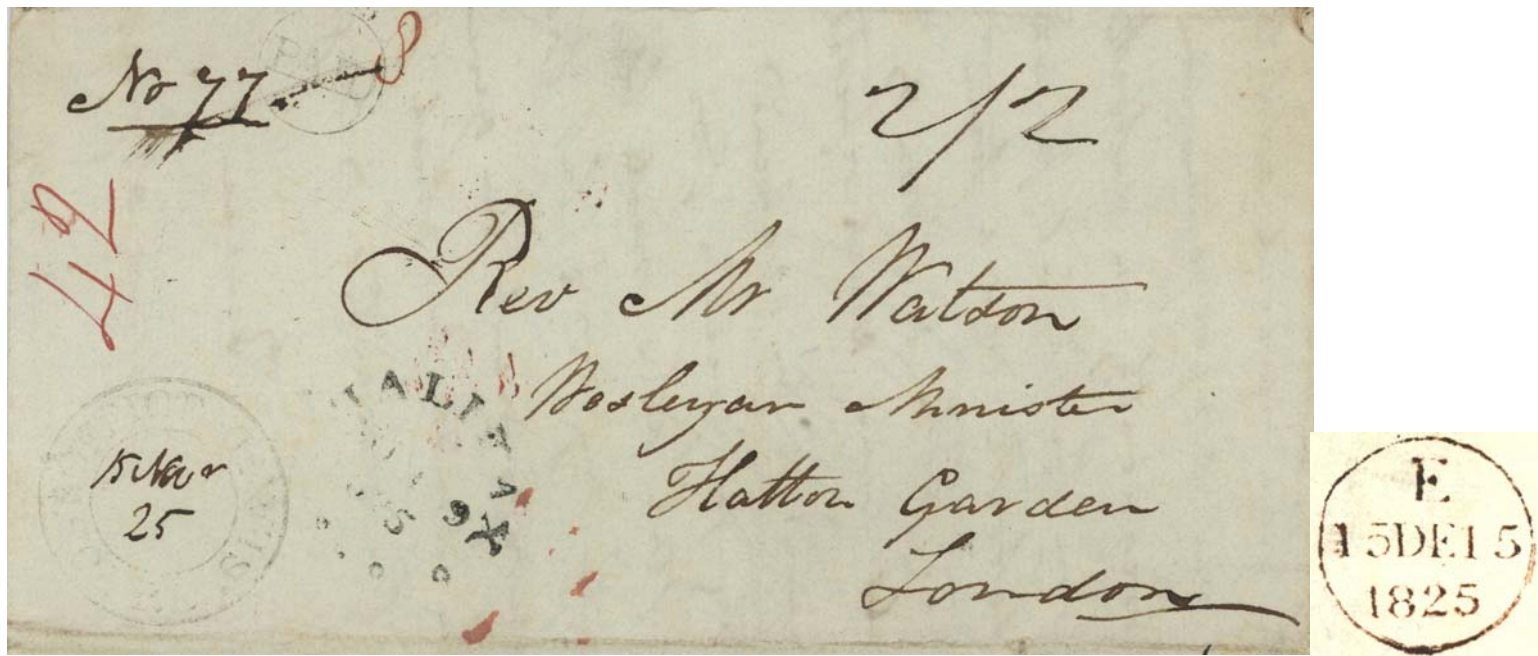 No 77
PAID
8
2/2
42
Rev Mr Watson
Wesleyan Minister
Hatton Garden
London
HALIFAX
15 Nov
25
E
15DE15
1825